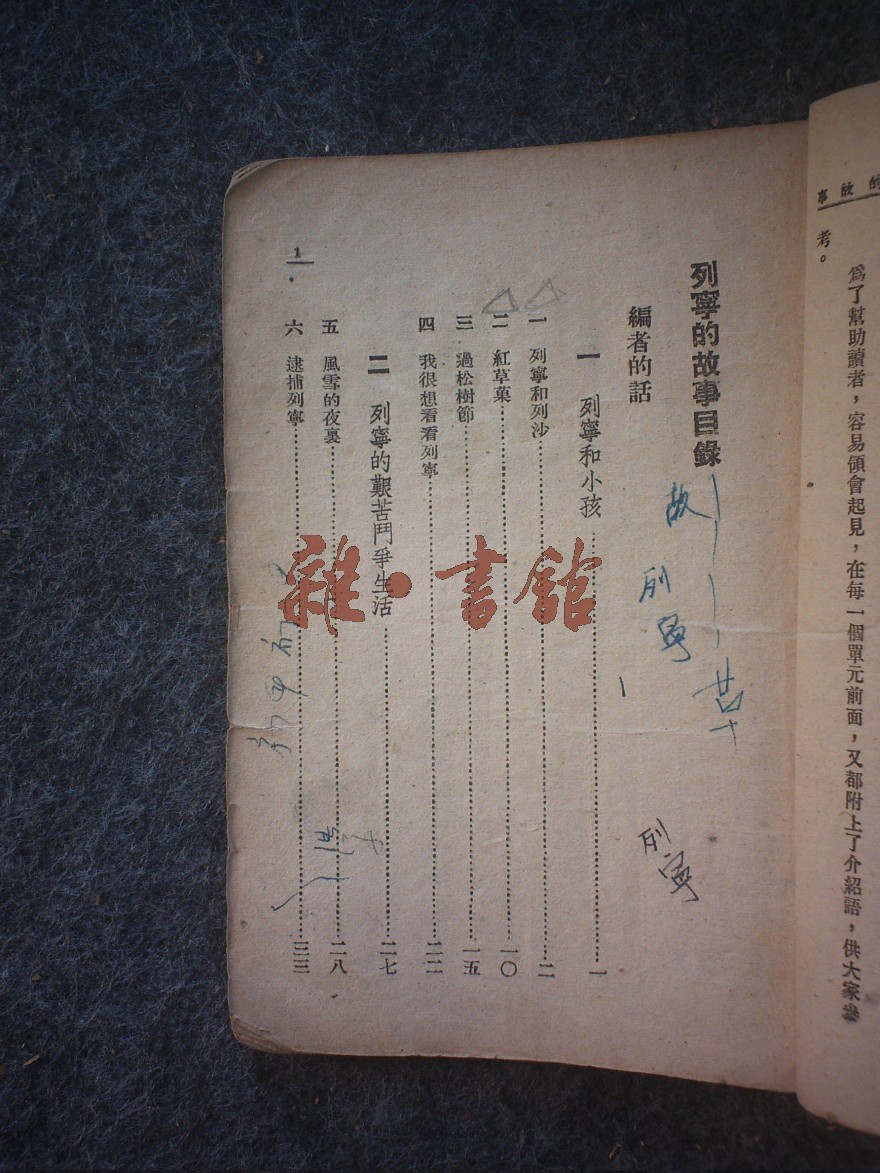 的故事
為了幫助讀者，容易領會起見，在每一個單元前面，又都附上了介紹語，供大家參
考。
列寧的故事目錄
編者的話
一 列寧和小孩 一
一 列寧和列沙 二
二 紅草菓 一〇
三 過松樹節 一五
四 我很想看看列寧 二二
二 列寧的艱苦鬥爭生活 二七
五 風雪的夜裏 二八
六 逮捕列寧 三三
1
故 列寧
列寧
雜·書館